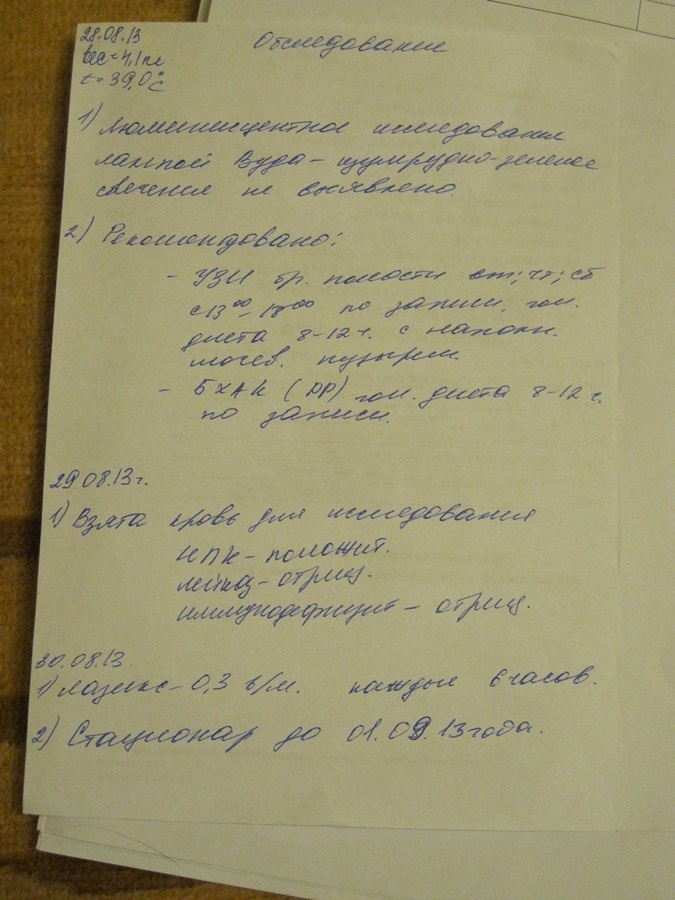 28.08.13
вес = 4,1 кг
t = 39,0°C
Обследование
1) Люминисцентное исследование
лампой Вуда – изумрудно-зеленое
свечение не выявлено.
2) Рекомендовано:
- УЗИ бр. полости вт; чт; сб
с 13⁰⁰ - 18⁰⁰ по записи, гол.
диета 8-12 ч. с наполн.
мочев. пузырем.
- БХАК (ДР) гол. диета 8-12 ч.
по записи.
29.08.13г.
1) Взята кровь для исследования
ИПК – положит.
лейкоз – отриц.
иммунодефицит – отриц.
30.08.13
1) Лазикс – 0,3 в/м. каждые 6 часов.
2) Стационар до 01.09.13 года.